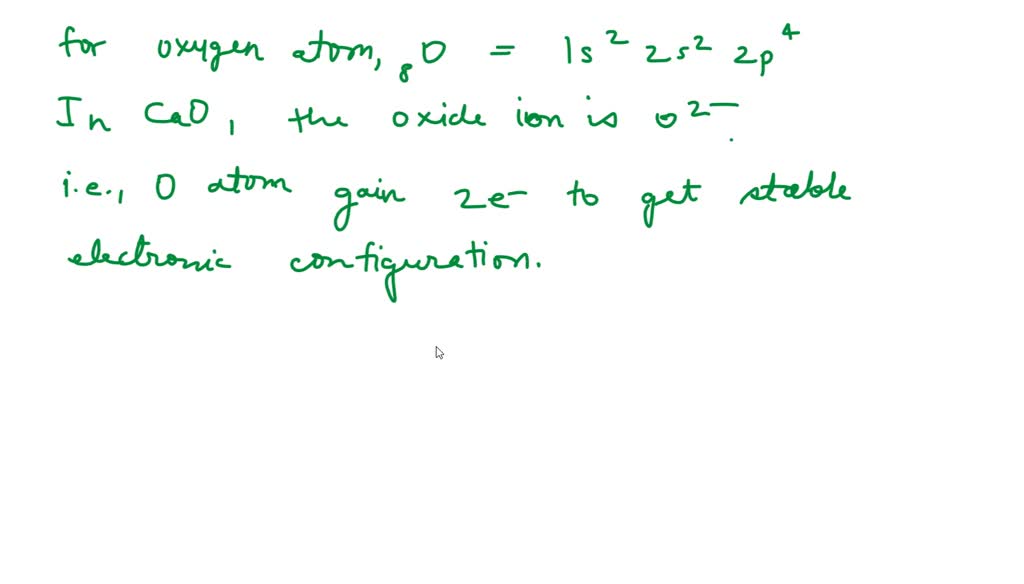 for oxygen atom, ₈O = 1s² 2s² 2p⁴
In CaO, the oxide ion is O²⁻.
i.e., O atom gain 2e⁻ to get stable
electronic configuration.